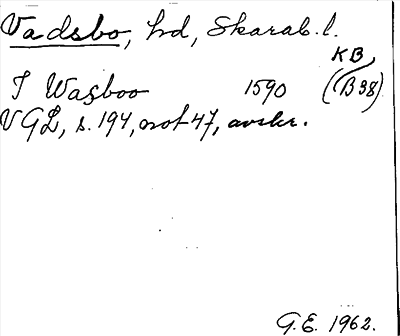 Vadsbo, hd, Skarab. l.
KB
I Wasboo 1590 (B 38)
VGL, s. 194, not 47, avskr.
G.E. 1962.